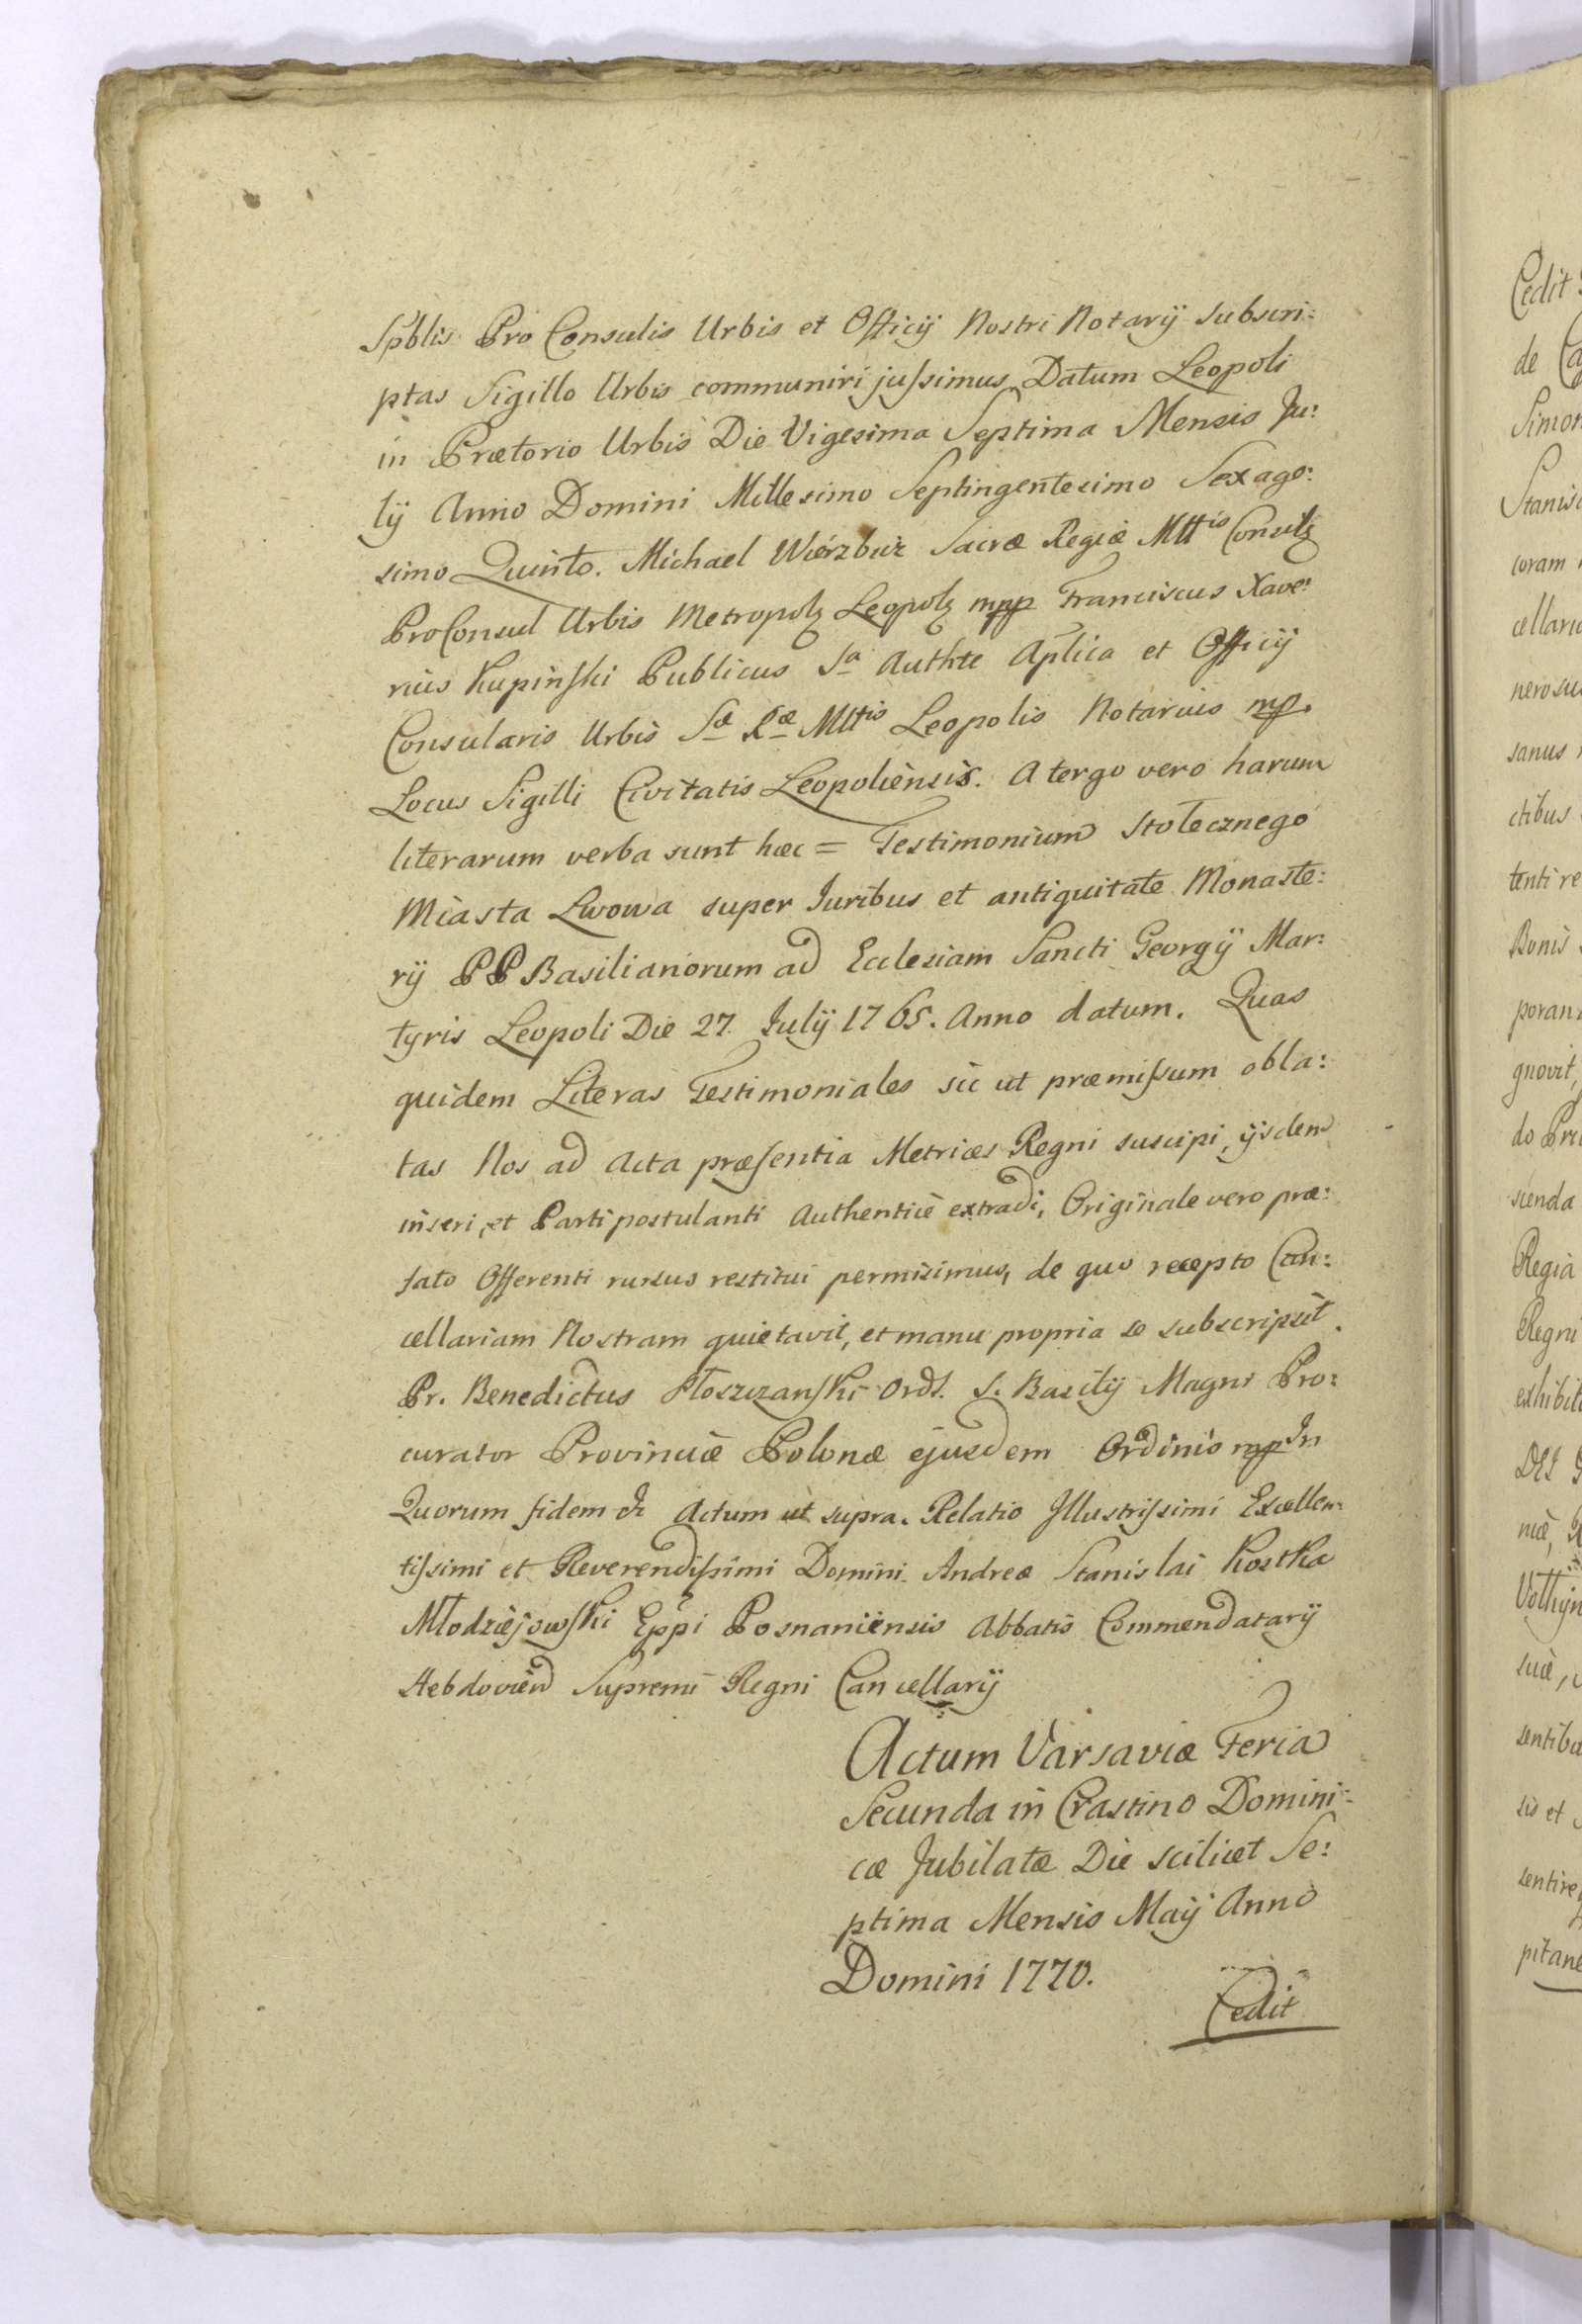 Spblis Pro Consulis Urbis et Officij Nostri Notarij subscri:
ptas Sigillo Urbis communiri jussimus Datum Leopoli
in Prætorio Urbis Die Vigesima Septima Mensis Ju:
lij Anno Domini Millesimo Septingentesimo Sexage:
simo Quinto. Michael Wierzbiz Sacræ Regiæ Mttis
ProConsul Urbis Metropolz Leopolz mpp Franciscus Xave:
rius Kupinski Publicus Sa Authte Aplica et Officij
Consularis Urbis Sæ Ræ Mttis Leopolis Notarius mp.
Locus Sigilli Civitatis Leopoliensis. A tergo vero harum
literarum verba sunt hæc = Testimonium Stołecznego
Miasta Lwowa super Juribus et antiquitate Monaste:
rij PP Basilianorum ad Ecclesiam Sancti Georgij Mar:
tyris Leopoli Die 27. Julij 1765. Anno datum. Quas
quidem Literas Testimoniales sic ut præmissum obla:
tas Nos ad Acta præsentia Metrices Regni suscipi, ijsdem
inseri, et Parti postulanti Authenticè extradi, Originale vero præ:
fato Offerenti rursus restitui permisimus, de quo recepto Can:
cellariam Nostram quietavit, et manu propria se subscripsit.
Pr. Benedictus Płoszczanski Ords. S. Basilij Magni Pro:
curator Provinciæ Polonæ ejusdem Ordinis mp In
Quorum fidem &c Actum ut supra. Relatio Illustrissimi Excellen:
tissimi et Reverendissimi Domini Andreæ Stanislai Kostka
Młodziejowski Eppi Posnaniensis Abbatis Commendatarij
Hebdovien Supremi Regni Cancellarij
Actum Varsaviæ Feria
Secunda in Crastino Domini:
cæ Jubilatæ Die scilicet Se:
ptima Mensis Maij Anno
Domini 1770.
Cedit
Cedit
de
Simon
coram
nerosu
sanus
ctibus
tenti re
Bonis
gnovit,
scienda
Regia
Regni
exhibit
sis et